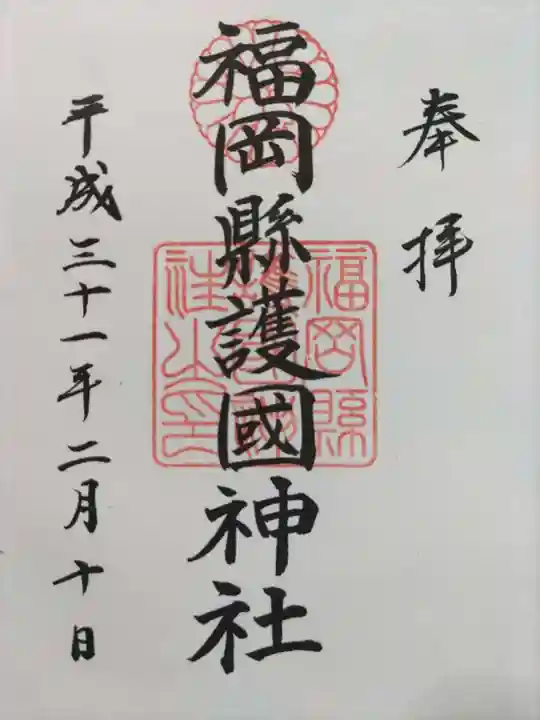 奉拝
福岡縣護國神社
平成三十一年二月十日
福岡縣